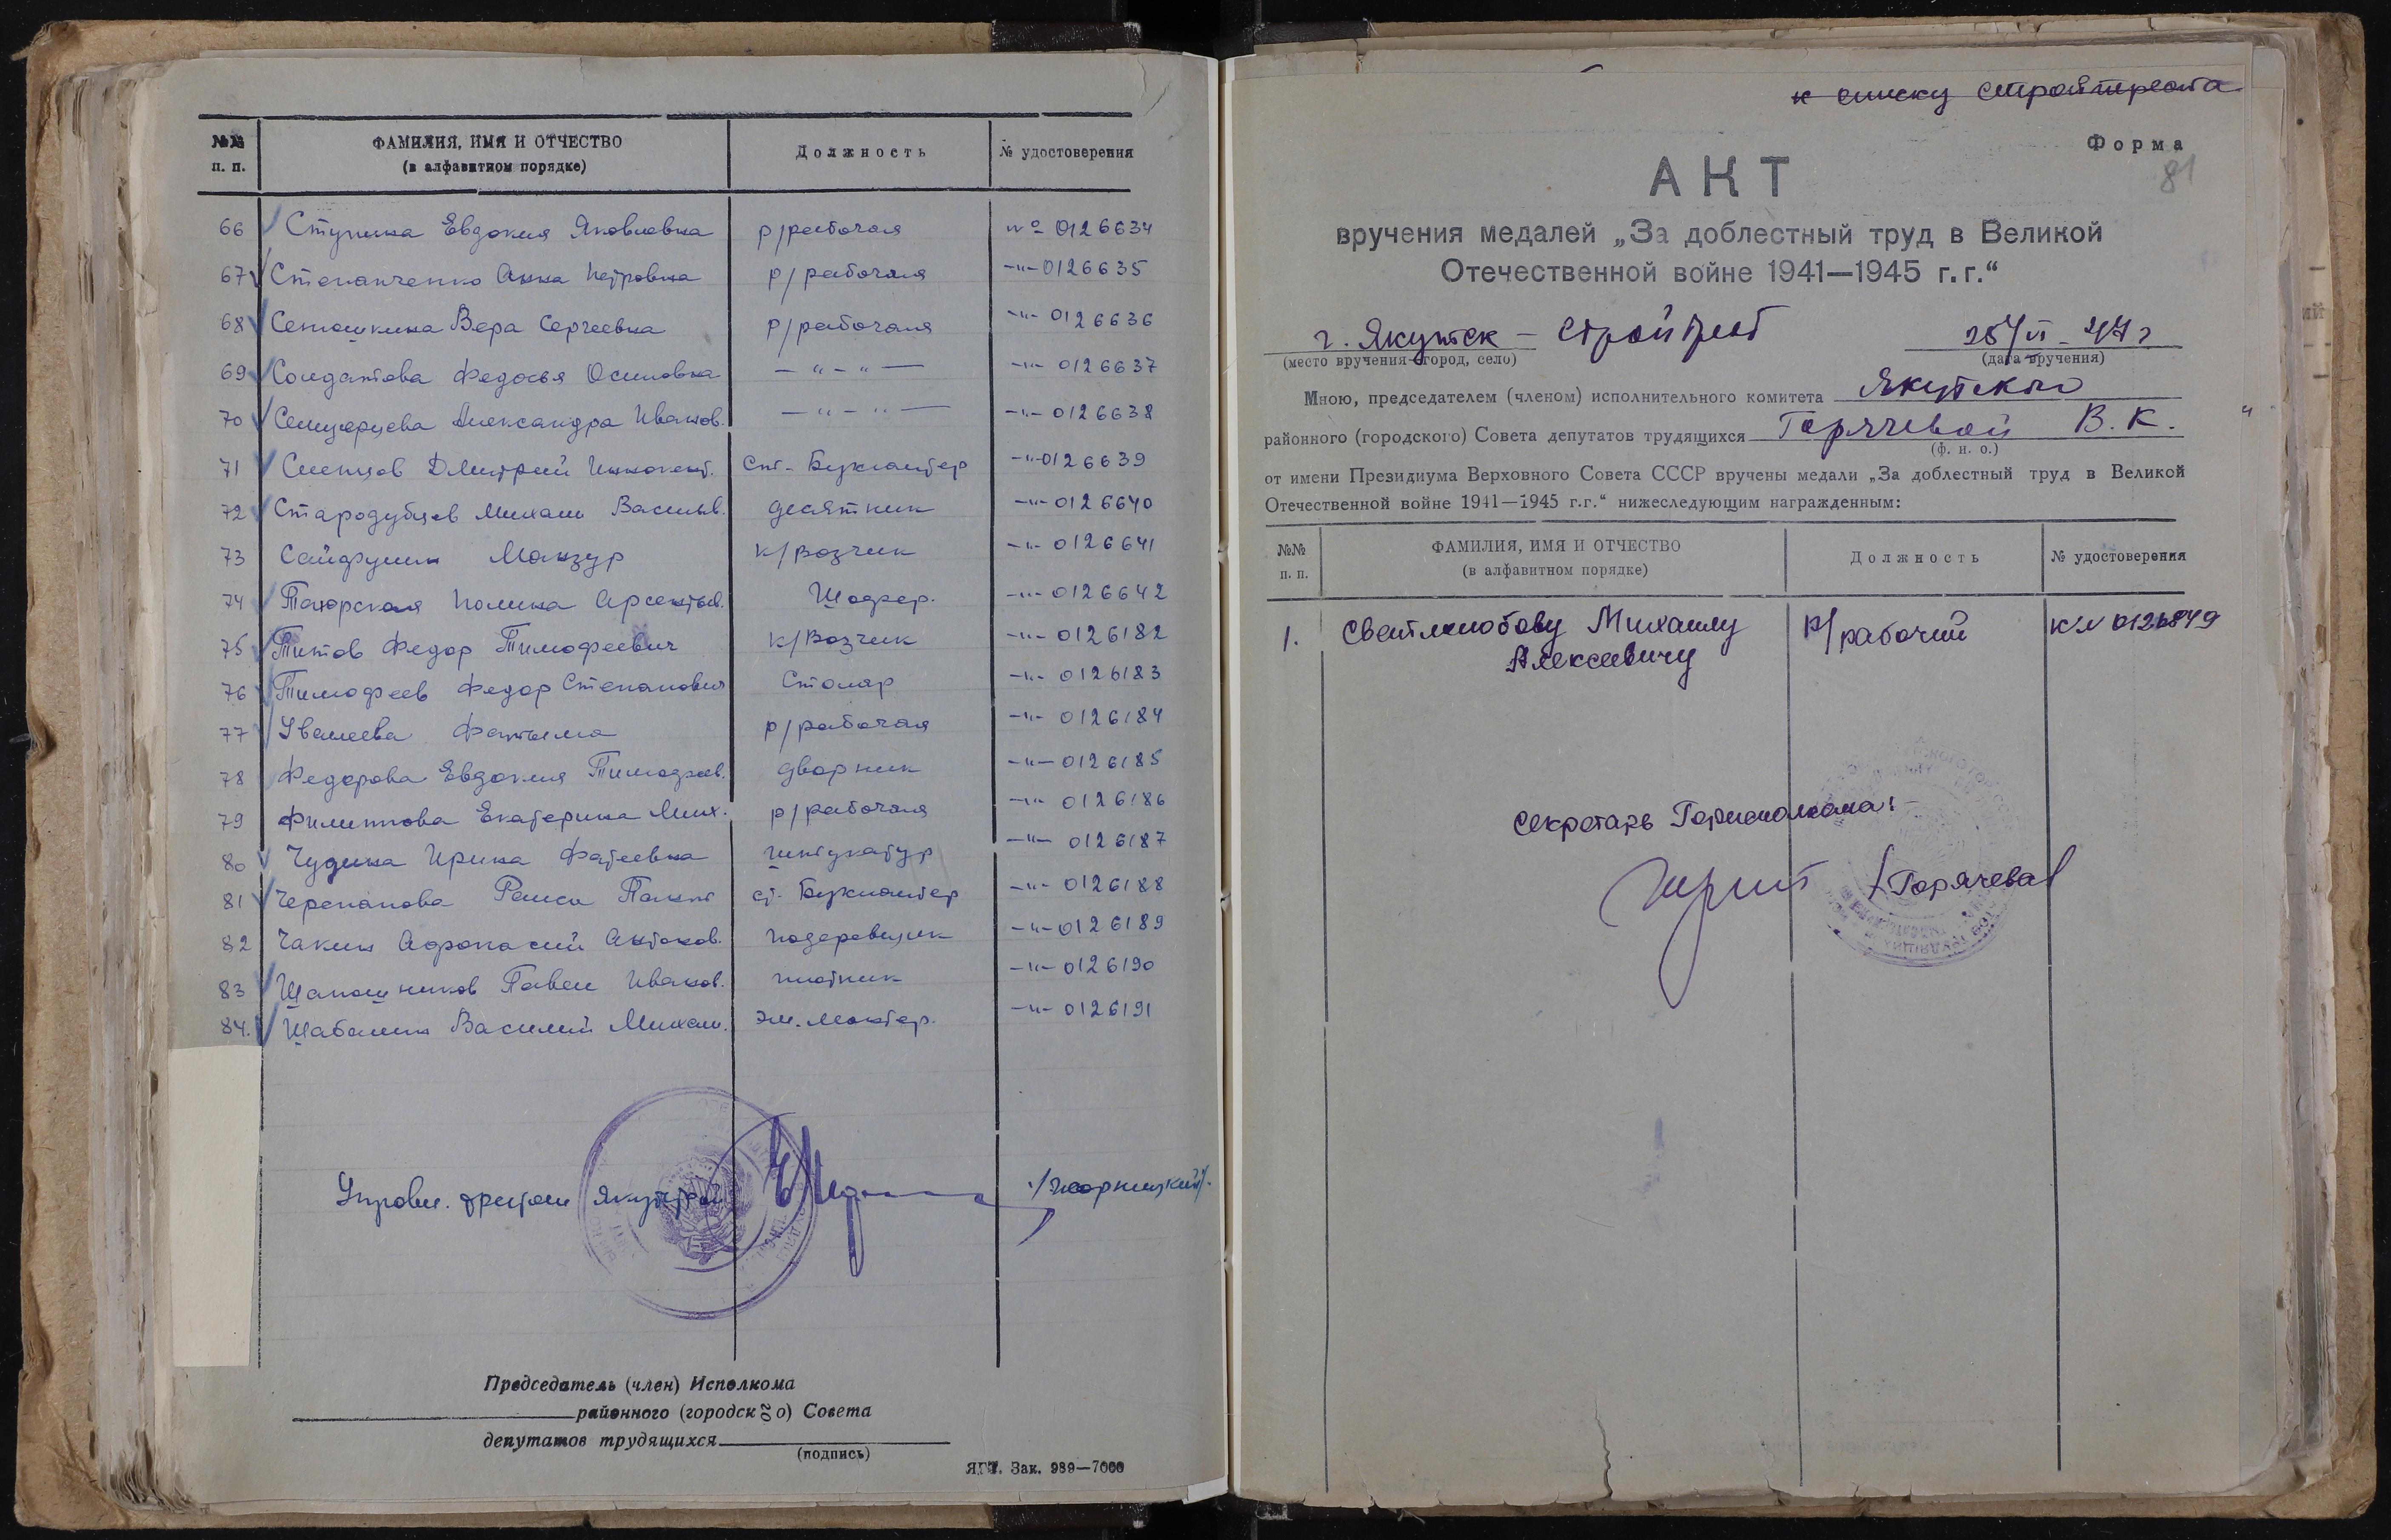 №№ п. п.
ФАМИЛИЯ, ИМЯ И ОТЧЕСТВО
(в алфавитном порядке)
Должность
№ удостоверения
66 Ступина Евдокия Яковлевна р/рабочая № 0126634
67 Степанченко Анна Петровна р/рабочая -"- 0126635
68 Сенюшкина Вера Сергеевна р/рабочая -"- 0126636
69 Солдатова Федосья Осиповна — " — " — -"- 0126637
70 Александра Иванов. — " — " — -"- 0126638
71 Слепцов Дмитрий Иннокент. Ст. Бухгалтер -"- 0126639
72 Стародубцев Михаил Васильв. десятник -"- 0126640
73 Сайфулин Манзур к/возчик -"- 0126641
74 Полина Арсентьев. -"- 0126642
75 Титов Федор Тимофеевич к/Возчик -"- 0126182
76 Тимофеев Федор Степанович Столяр -"- 0126183
77 Увалеева Фатыма р/рабочая -"- 0126184
78 Федорова Евдокия Тимофеев. дворник -"- 0126185
79 Филиппова Екатерина Мих. р/рабочая -"- 0126186
80 Чудина Ирина Фатеевна штукатур -"- 0126187
81 Черепанова Раиса ст. Бухгалтер -"- 0126188
82 Чакин Афонасий Антонов. -"- 0126189
83 Шапошников Павел Иванов. плотник -"- 0126190
84. Шабалин Василий Михаил. эл. Монтер. -"- 0126191
Управл. трестом
Председатель (член) Исполкома
районного (городского) Совета
депутатов трудящихся
(подпись)
ЯГТ. Зак. 989—7000
к списку Стройтреста
Форма
81
АКТ
вручения медалей „За доблестный труд в Великой
Отечественной войне 1941—1945 г.г.“
г. Якутск — Стройтрест 25/VI-47 г
(место вручения—город, село) (дата вручения)
Мною, председателем (членом) исполнительного комитета Якутского
районного (городского) Совета депутатов трудящихся Горячевой В. К.
(ф. и. о.)
от имени Президиума Верховного Совета СССР вручены медали „За доблестный труд в Великой
Отечественной войне 1941—1945 г.г.“ нижеследующим награжденным:
№№ п. п.
ФАМИЛИЯ, ИМЯ И ОТЧЕСТВО
(в алфавитном порядке)
Должность
№ удостоверения
1. Светлолобову Михаилу р/рабочий
Алексеевичу
Секретарь Горисполкома:
/Горячева/